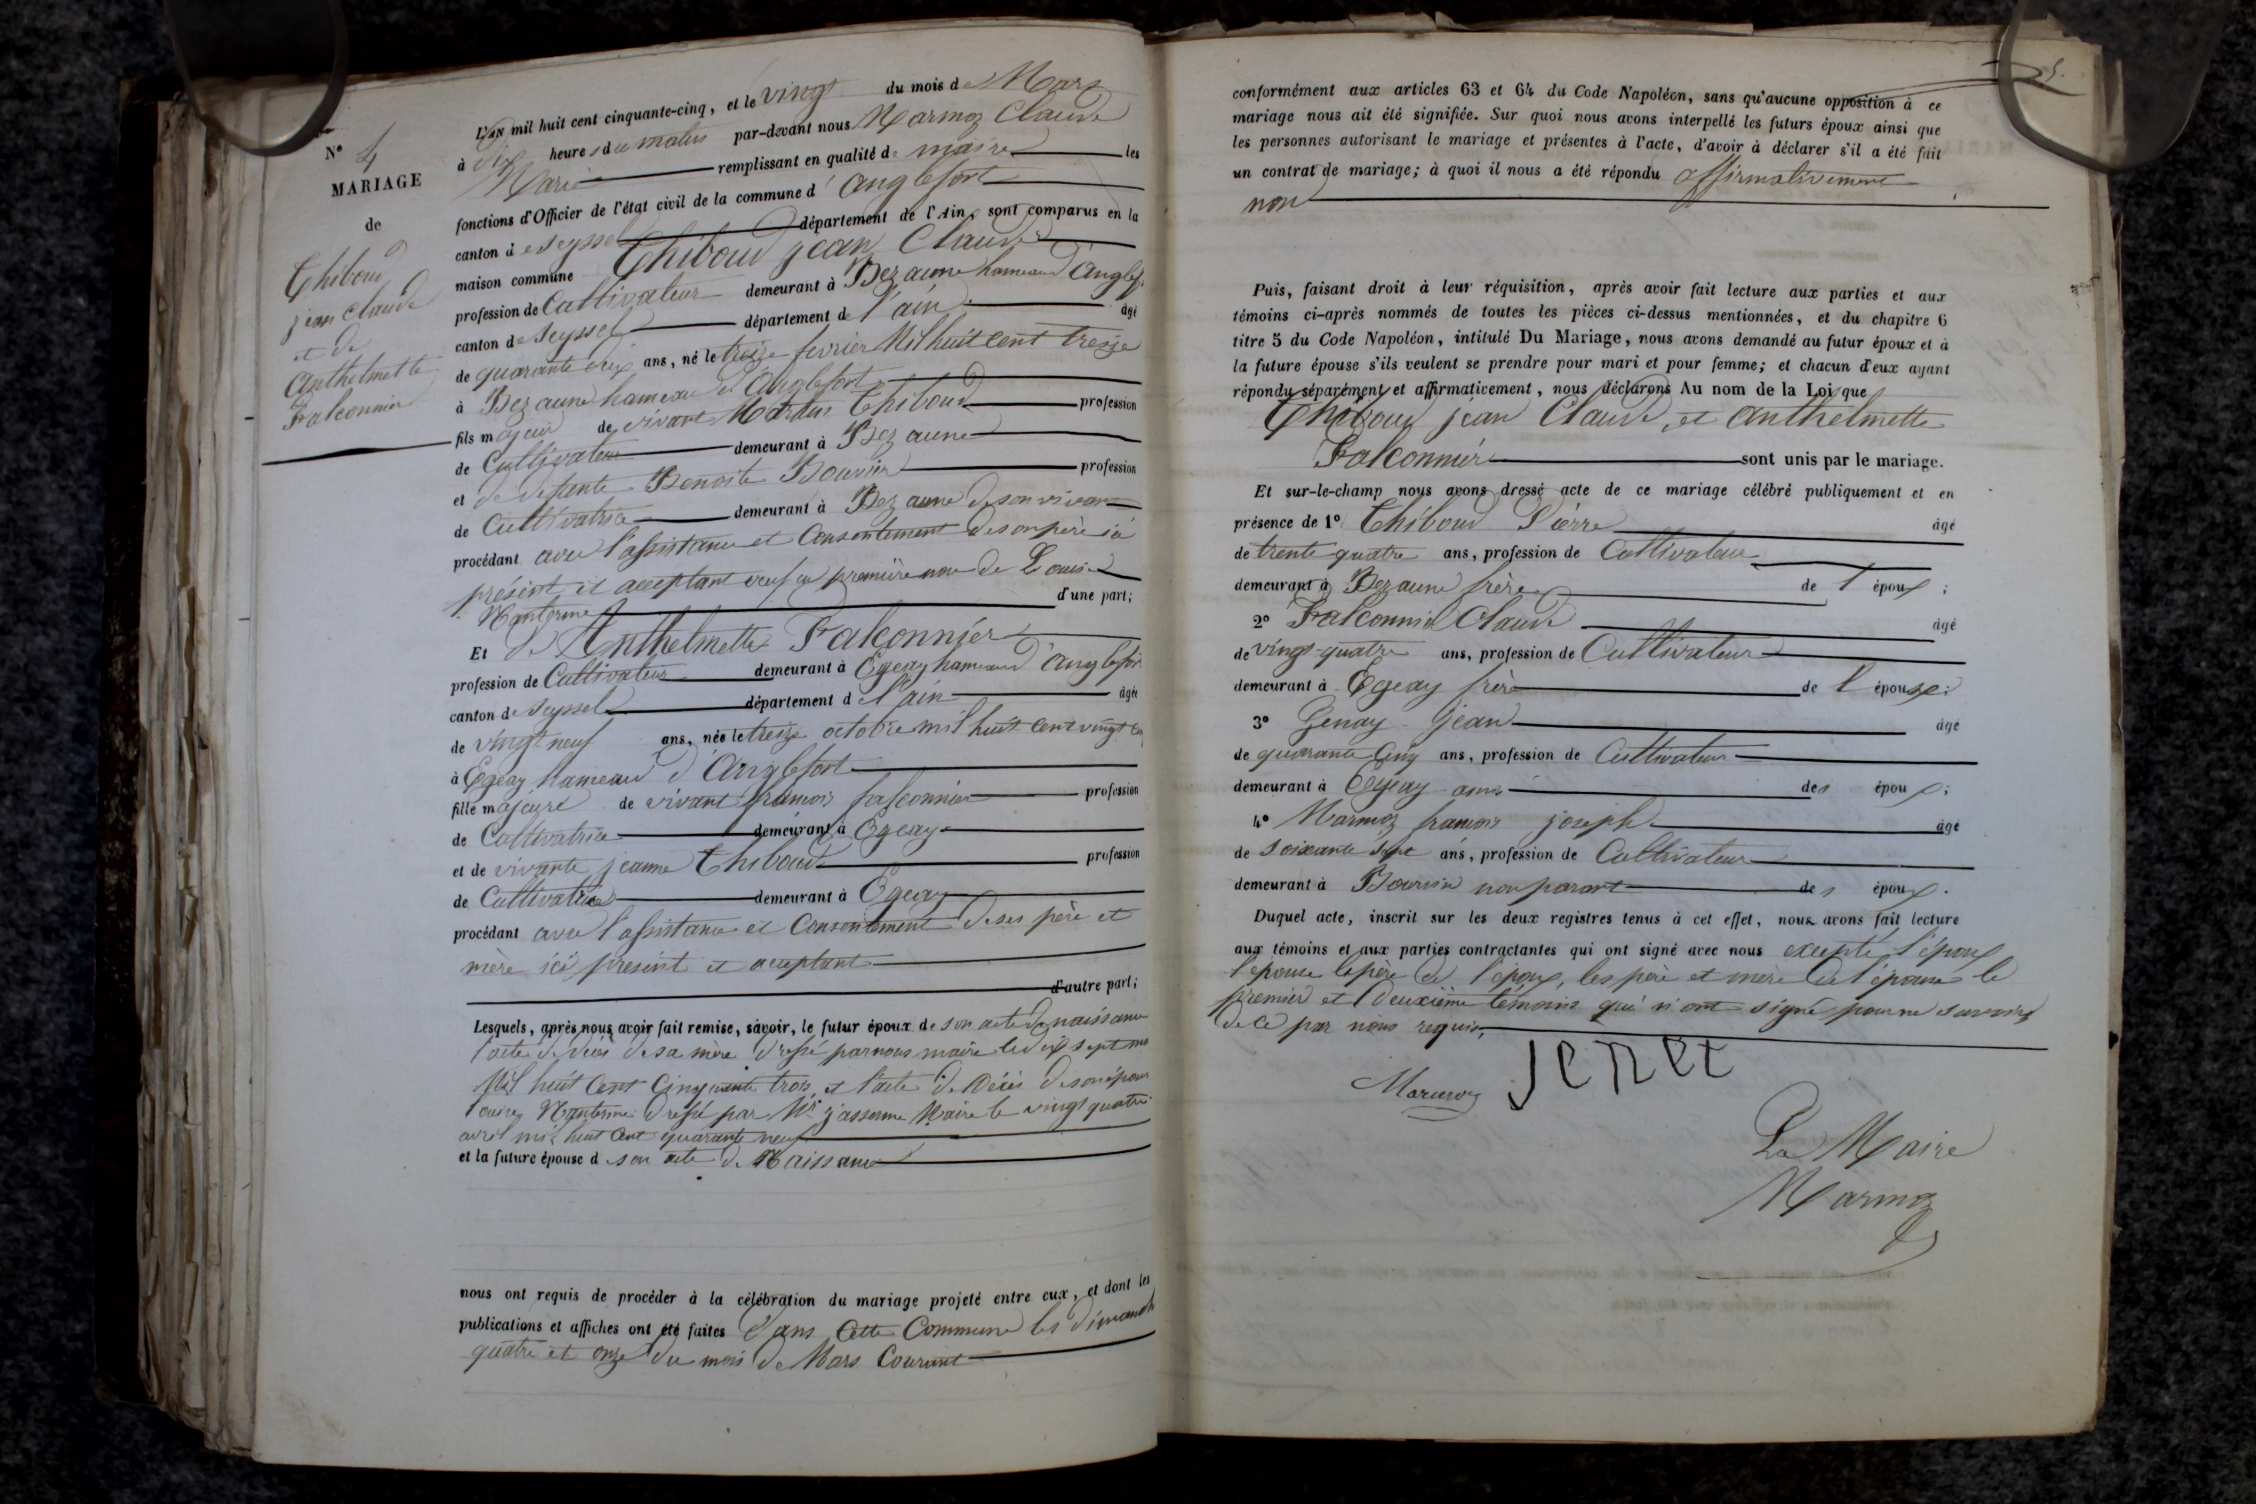 N° 4
MARIAGE
de
Thiboud
jean claude
et de
anthelmette
Falconnier
L'an mil huit cent cinquante-cinq, et le vingt du mois de Mars
à dix heures du matin par-devant nous Marmoz Claude
Marie remplissant en qualité de maire les
fonctions d'Officier de l'état civil de la commune d'anglefort
canton de seyssel département de l'Ain, sont comparus en la
maison commune Thiboud jean Claude
profession de Cultivateur demeurant à Bezaune hameau d'Anglef.
canton de Seyssel département de l'ain âgé
de quarante deux ans, né le treize fevrier Mil huit cent treize
à Bezaune hameau d'Anglefort
fils majeur de vivant Martin Thiboud profession
de Cultivateur demeurant à Bezaune
et de defunte Benoite Bouvier profession
de Cultivatrice demeurant à Bezaune de son vivant
procédant avec l'assistance et Consentement de son père ici
présent et acceptant veuf en première noce de Louise
Nanterme d'une part;
Et de Anthelmette Falconnier
profession de Cultivateur demeurant à Egeay hameau d'anglefor
canton de Seyssel département de l'ain âgée
de vingt neuf ans, née le treize octobre mil huit cent vingt cin
à Egeay hameau d'Anglefort
fille majeure de vivant francois falconnier profession
de Cultivatrice demeurant à Egeay
et de vivante jeanne Thiboud profession
de Cultivatrice demeurant à Egeay
procédant avec l'assistance et Consentement de ses père et
mère ici présent et acceptant
d'autre part;
Lesquels, après nous avoir fait remise, savoir, le futur époux de son acte de naissance
l'acte de décès de sa mère dressé par nous maire le dix sept mai
Mil huit Cent Cinquante trois et l'acte de décès de son épouse
Louise Nanterme dressé par Mr jasserme Maire le vingt quatre
avril mil huit cent quarante neuf
et la future épouse de son acte de Naissance
nous ont requis de procéder à la célébration du mariage projeté entre eux, et dont les
publications et affiches ont été faites dans Cette Commune les dimanch
quatre et onze du mois de Mars Courant
5.
conformément aux articles 63 et 64 du Code Napoléon, sans qu'aucune opposition à ce
mariage nous ait été signifiée. Sur quoi nous avons interpellé les futurs époux ainsi que
les personnes autorisant le mariage et présentes à l'acte, d'avoir à déclarer s'il a été fait
un contrat de mariage; à quoi il nous a été répondu affirmativement
non
Puis, faisant droit à leur réquisition, après avoir fait lecture aux parties et aux
témoins ci-après nommés de toutes les pièces ci-dessus mentionnées, et du chapitre 6
titre 5 du Code Napoléon, intitulé Du Mariage, nous avons demandé au futur époux et à
la future épouse s'ils veulent se prendre pour mari et pour femme; et chacun d'eux ayant
répondu séparément et affirmativement, nous déclarons Au nom de la Loi que
Thiboud jean Claude, et anthelmette
Falconnier sont unis par le mariage.
Et sur-le-champ nous avons dressé acte de ce mariage célébré publiquement et en
présence de 1° Thiboud Pierre âgé
de trente quatre ans, profession de Cultivateur
demeurant à Bezaune frère de l'époux;
2° Falconnier Claude âgé
de vingt-quatre ans, profession de Cultivateur
demeurant à Egeay frère de l'épouse;
3° Genay jean âgé
de quarante Cinq ans, profession de Cultivateur
demeurant à Egeay ami des époux;
4° Marmoz francois joseph âgé
de soixante sept ans, profession de Cultivateur
demeurant à Boursin non parent des époux.
Duquel acte, inscrit sur les deux registres tenus à cet effet, nous avons fait lecture
aux témoins et aux parties contractantes qui ont signé avec nous excepté l'époux
l'épouse le père de l'époux, les père et mere de l'épouse le
premier et deuxième témoins qui n'ont signé pour ne savoir
de ce par nous requis,
Marmoz jenet
Le Maire
Marmoz